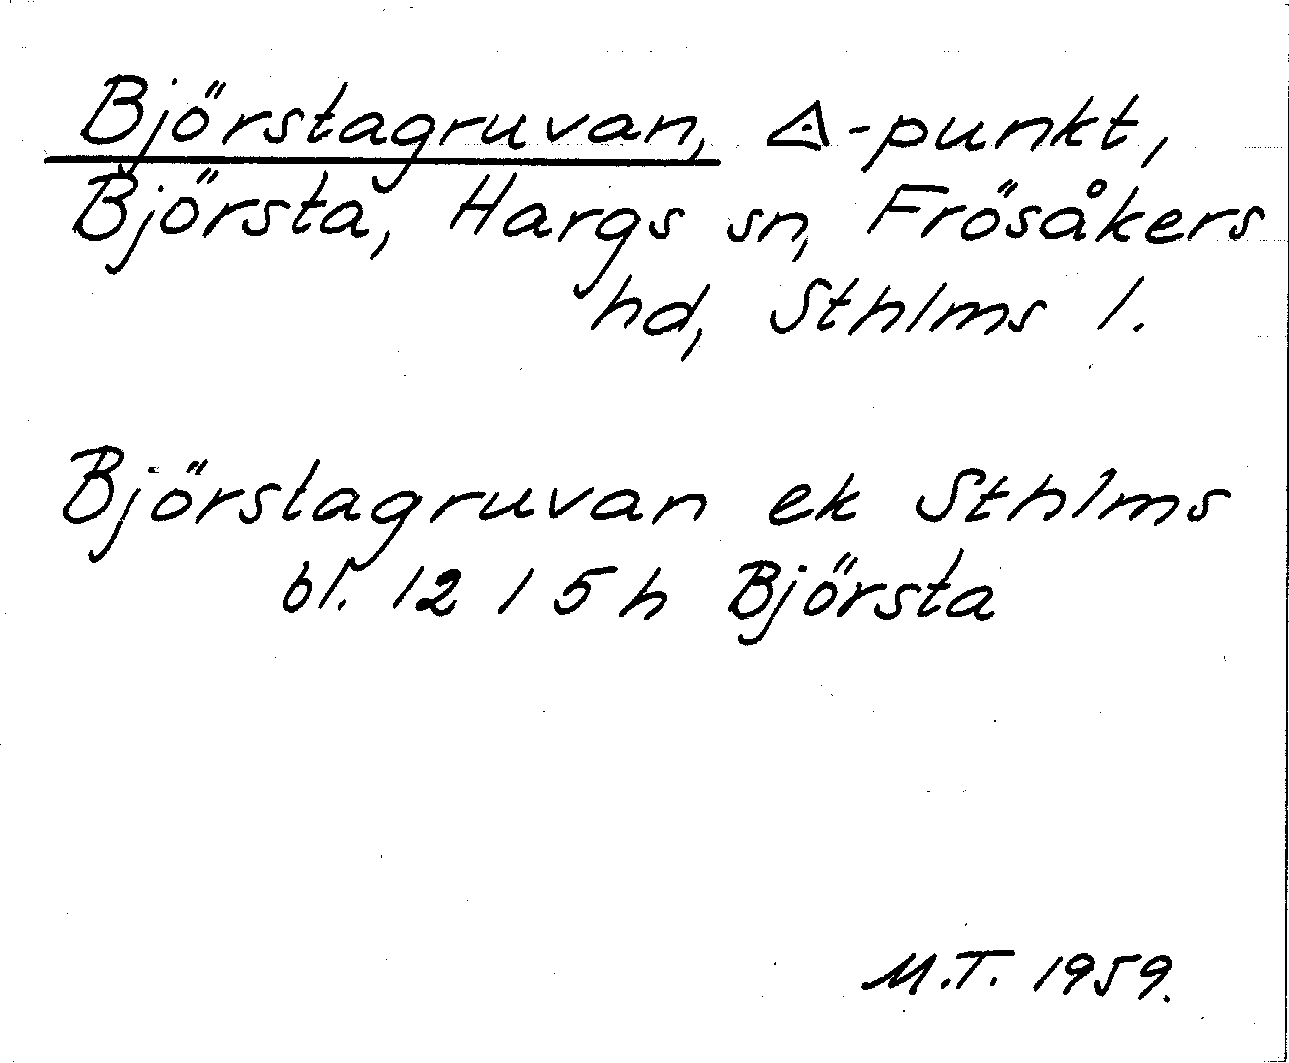 Björstagruvan, ◬-punkt,
Björsta, Hargs sn, Frösåkers
hd, Sthlms l.
Björstagruvan ek Sthlms
bl. 12 I 5 h Björsta
M.T. 1959.